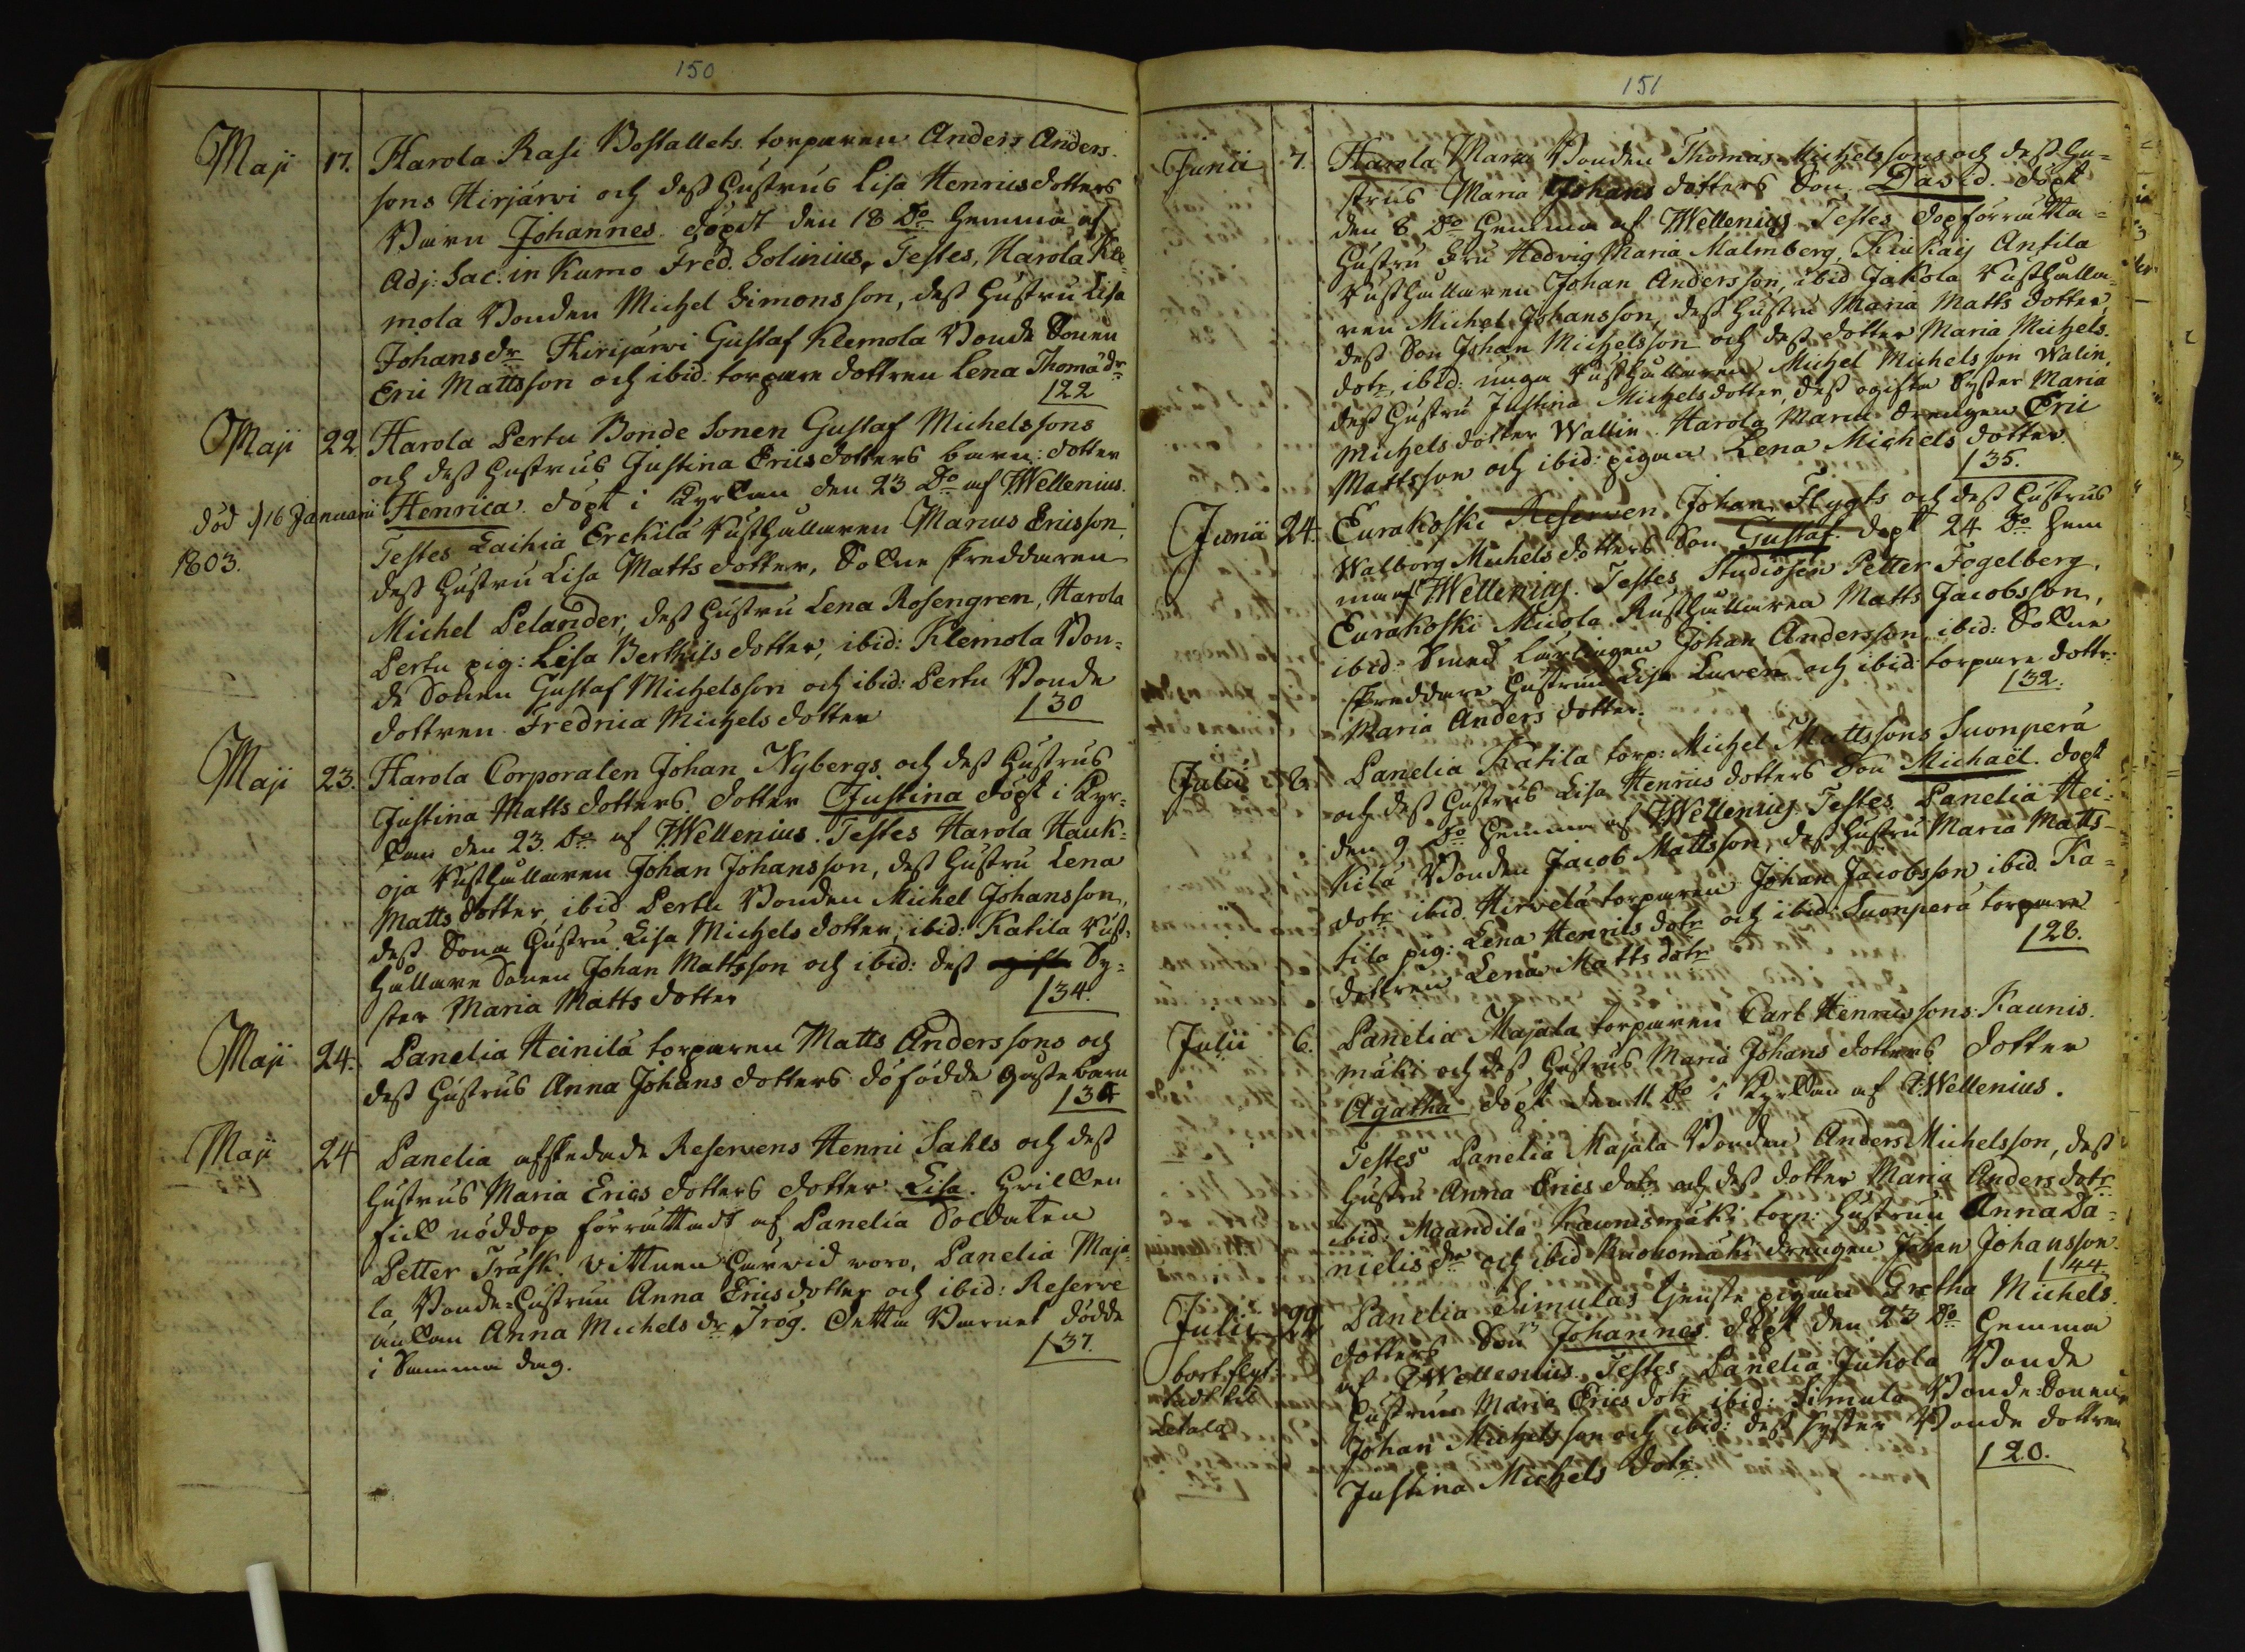 150
Maji 17. Harola Rasi Bostallets torparen Anders Anders-
sons Hirjärvi och dess hustrus Lisa Henricsdotters
Barn Johannes. döpt den 18 Do hemma af
Adj: Sac: in Kumo Fred. Solinius, Testes, Harola Kle-
mola Bonden Michel Simonsson, dess hustru Lisa
Johansdr Hirijärvi Gustaf Klemola Bonde Sonen
Eric Mattsson och ibid: torpare dottren Lena Thomædr
/22
Maji 22. Harola Pertu Bonde Sonen Gustaf Michelssons
och dess hustrus Justina Ericsdotters barn: dotter
död d/16 Januarii Henrica. döpt i Kyrkan den 23 Do af F.Wellenius.
1803. Testes Laihia Erckilä Rusthållaren Marcus Ericsson,
dess hustru Lisa Mattsdotter, Sockne skreddaren
Michel Pelander, dess hustru Lena Rosengren, Harola
Pertu pig: Lisa Berthilsdotter, ibid: Klemola Bon-
de Sonen Gustaf Michelsson och ibid: Pertu Bonde
dottren Fredrica Michelsdotter
/30
Maji 23. Harola Corporalen Johan Nybergs och dess hustrus
Justina Mattsdotters dotter Justina döpt i Kyr-
kan den 23 Do af F.Wellenius. Testes Harola Hauk-
oja Rusthållaren Johan Johansson, dess hustru Lena
Mattsdotter, ibid Pertu Bonden Michel Johansson,
dess Sons hustru Lisa Michelsdotter, ibid: Katila Rust-
hållare Sonen Johan Mattsson och ibid: dess Sy-
ster Maria Mattsdotter
/34.
Maji 24. Panelia Heinilä torparen Matts Anderssons och
dess hustrus Anna Johansdotters döfödde gosse barn
Maji 24 Panelia afskedade Reservens Henric Sahls och dess
hustrus Maria Ericsdotters dotter Lisa. hvilken
fick nöddop förrättadt af Panelia Soldaten
Petter Träsk. vittnen härvid voro, Panelia Maja-
la Bonde-hustrun Anna Ericsdotter och ibid: Reserve
änkan Anna Michelsdr Trög. detta Barnet dödde
i Samma dag.
/37.
151
Junii 7. Harola Marcu Bonden Thomas Michelssons och dess hu-
strus Maria Johansdotters Son David. döpt
den 8 Do hemma af F.Wellenius. Testes
hustru Fru Hedvig Maria Malmberg, Kiukais Anfila
Rusthållaren Johan Andersson, ibid Jakola Rusthålla-
ren Michel Johansson, dess hustru Maria Mattsdotter,
dess Son Johan Michelsson och dess dotter Maria Michels-
dotr, ibid: unga Rusthållaren Michel Michelsson Walin,
dess hustru Justina Michelsdotter, dess ogifta Syster Maria
Michelsdotter Wallin. Harola Marcu drengen Eric
Mattsson och ibid: pigan Lena Michelsdotter.
/35.
Junii 24. Eurakoski Reserven Johan Flygts och dess hustrus
Walborg Michelsdotters Son Gustaf. döpt 24 Do hem
ma af F.Wellenius. Testes, Studiosen Petter Fogelberg,
Eurakoski Micola Rusthållaren Matts Jacobsson,
ibid: Smeds lärlingen Johan Andersson, ibid: Sockne
skreddare hustrun Lisa Lurén och ibid: torpare dottr:
Maria Andersdotter.
/32.
Julii 8. Panelia Katila torp: Michel Mattssons Suonperä
och dess hustrus Lisa Henricsdotters Son Michaël. döpt
den 9 Do hemma af F.Wellenius. Testes Panelia Hei-
kilä Bonden Jacob Mattsson, dess hustru Maria Matts-
dotr ibid. Hirvelä torparen Johan Jacobsson ibid. Ka-
tila pig: Lena Henricsdotr och ibid: Suonperä torpare
dottren Lena Mattsdotr
/28.
Julii 6. Panelia Majala torparen Carl Henricssons Kaunis-
mäki och dess hustrus Maria Johansdotters dotter
Agatha döpt den 11 Do i Kyrkan af F.Wellenius.
Testes Panelia Majala Bonden Anders Michelsson, dess
hustru Anna Ericsdotr och dess dotter Maria Andersdotr
ibid: Maandila Kaunismäki torp: hustrun Anna Da-
nielsdr och ibid Ruokomäki drengen Johan Johansson.
/44.
Julii 22 Panelia Simulas tjenste pigan Gretha Michels-
dotters Son Johannes. döpt den 23 Do hemma
bortflyt- af F.Wellenius. Testes, Panelia Juhola Bonde
tadt till hustrun Maria Ericsdotr ibid: Simula Bonde-Sonen
Letala Johan Michelsson och ibid: dess Syster Bonde dottren
Justina Michelsdotr.
/20.